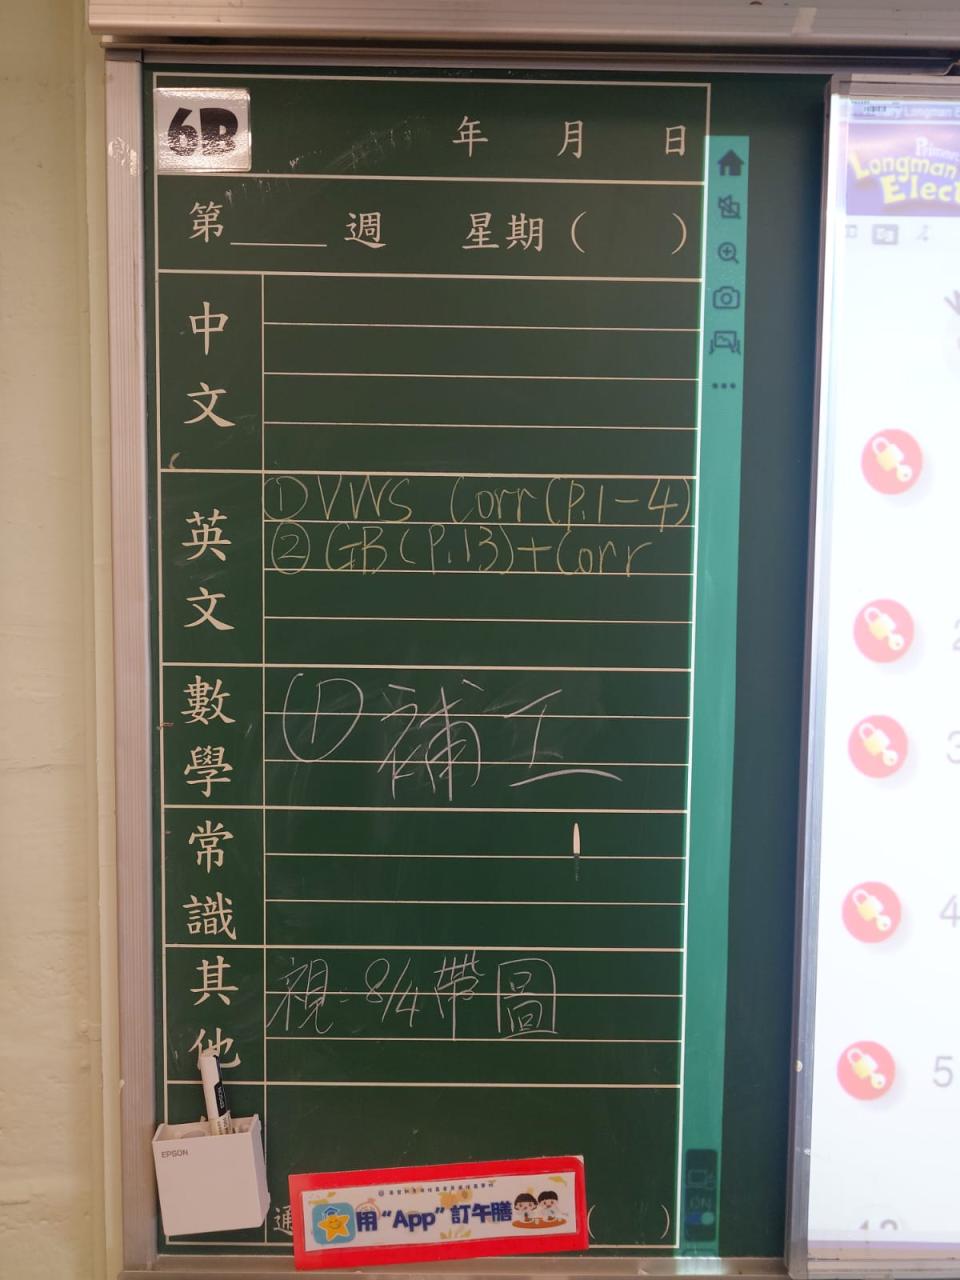 6B
年 月 日
第____週 星期( )
中文
英文
① VWS Corr (P.1-4)
② GB (P.13) + Corr
數學
① 補工
常識
其他
視：8/4 帶圖
EPSON
EPSON
用“App”訂午膳
通
( )
Longman E
Primary
Longman
Elect
2
3
4
5
ON